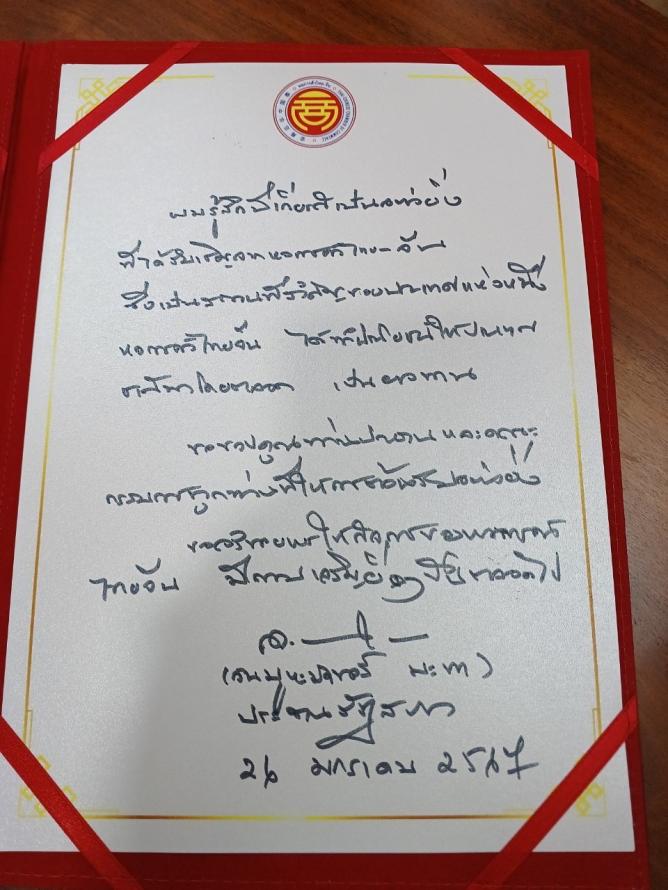 หอการค้าไทย-จีน
THAI-CHINESE CHAMBER OF COMMERCE
ผมรู้สึกมีเกียรติเป็นอย่างยิ่ง
ที่ได้รับเชิญจากหอการค้าไทย-จีน
ซึ่งเป็นสถานที่สำคัญของประเทศแห่งหนึ่ง
หอการค้าไทยจีน ได้ทำประโยชน์ให้ประเทศ
ชาติมาโดยตลอด เป็นยาวนาน
ขอขอบคุณท่านประธาน และคณะ
กรรมการทุกท่านที่ให้การต้อนรับอย่างยิ่ง
ขออวยพรให้กิจการของหอการค้า
ไทยจีน มีความเจริญยิ่งๆ ขึ้นตลอดไป
(วันมูหะมัดนอร์ มะทา)
ประธานรัฐสภา
26 มกราคม 2567